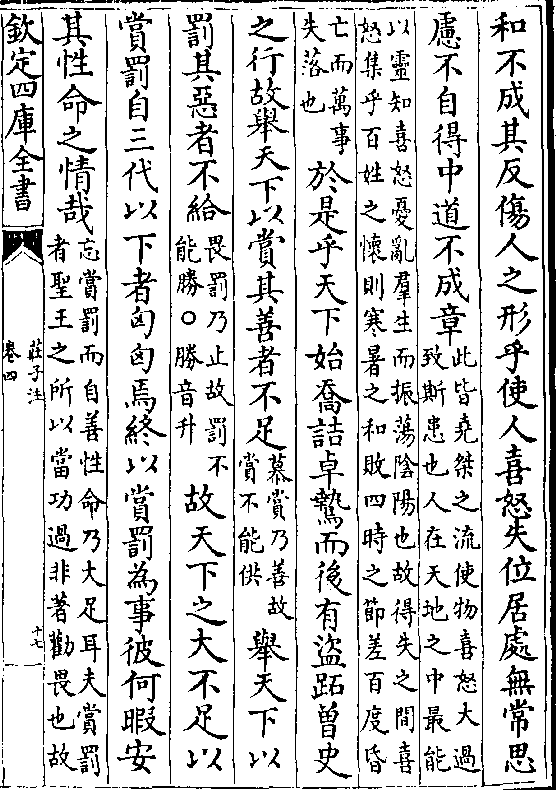 和不成其反傷人之形乎使人喜怒失位居處無常思
慮不自得中道不成章此皆堯桀之流使物喜怒大過
致斯患也人在天地之中最能
以靈知喜怒憂亂羣生而振蕩陰陽也故得失之間喜
怒集乎百姓之懷則寒暑之和敗四時之節差百度昏
亡而萬事
失落也於是乎天下始喬詰卓鷙而後有盜跖曾史
之行故舉天下以賞其善者不足慕賞乃善故
賞不能供舉天下以
罰其惡者不給畏罰乃止故罰不
能勝○勝音升故天下之大不足以
賞罰自三代以下者匈匈焉終以賞罰為事彼何暇安
其性命之情哉忘賞罰而自善性命乃大足耳夫賞罰
者聖王之所以當功過非著勸畏也故
欽定四庫全書
莊子注
卷四
十七